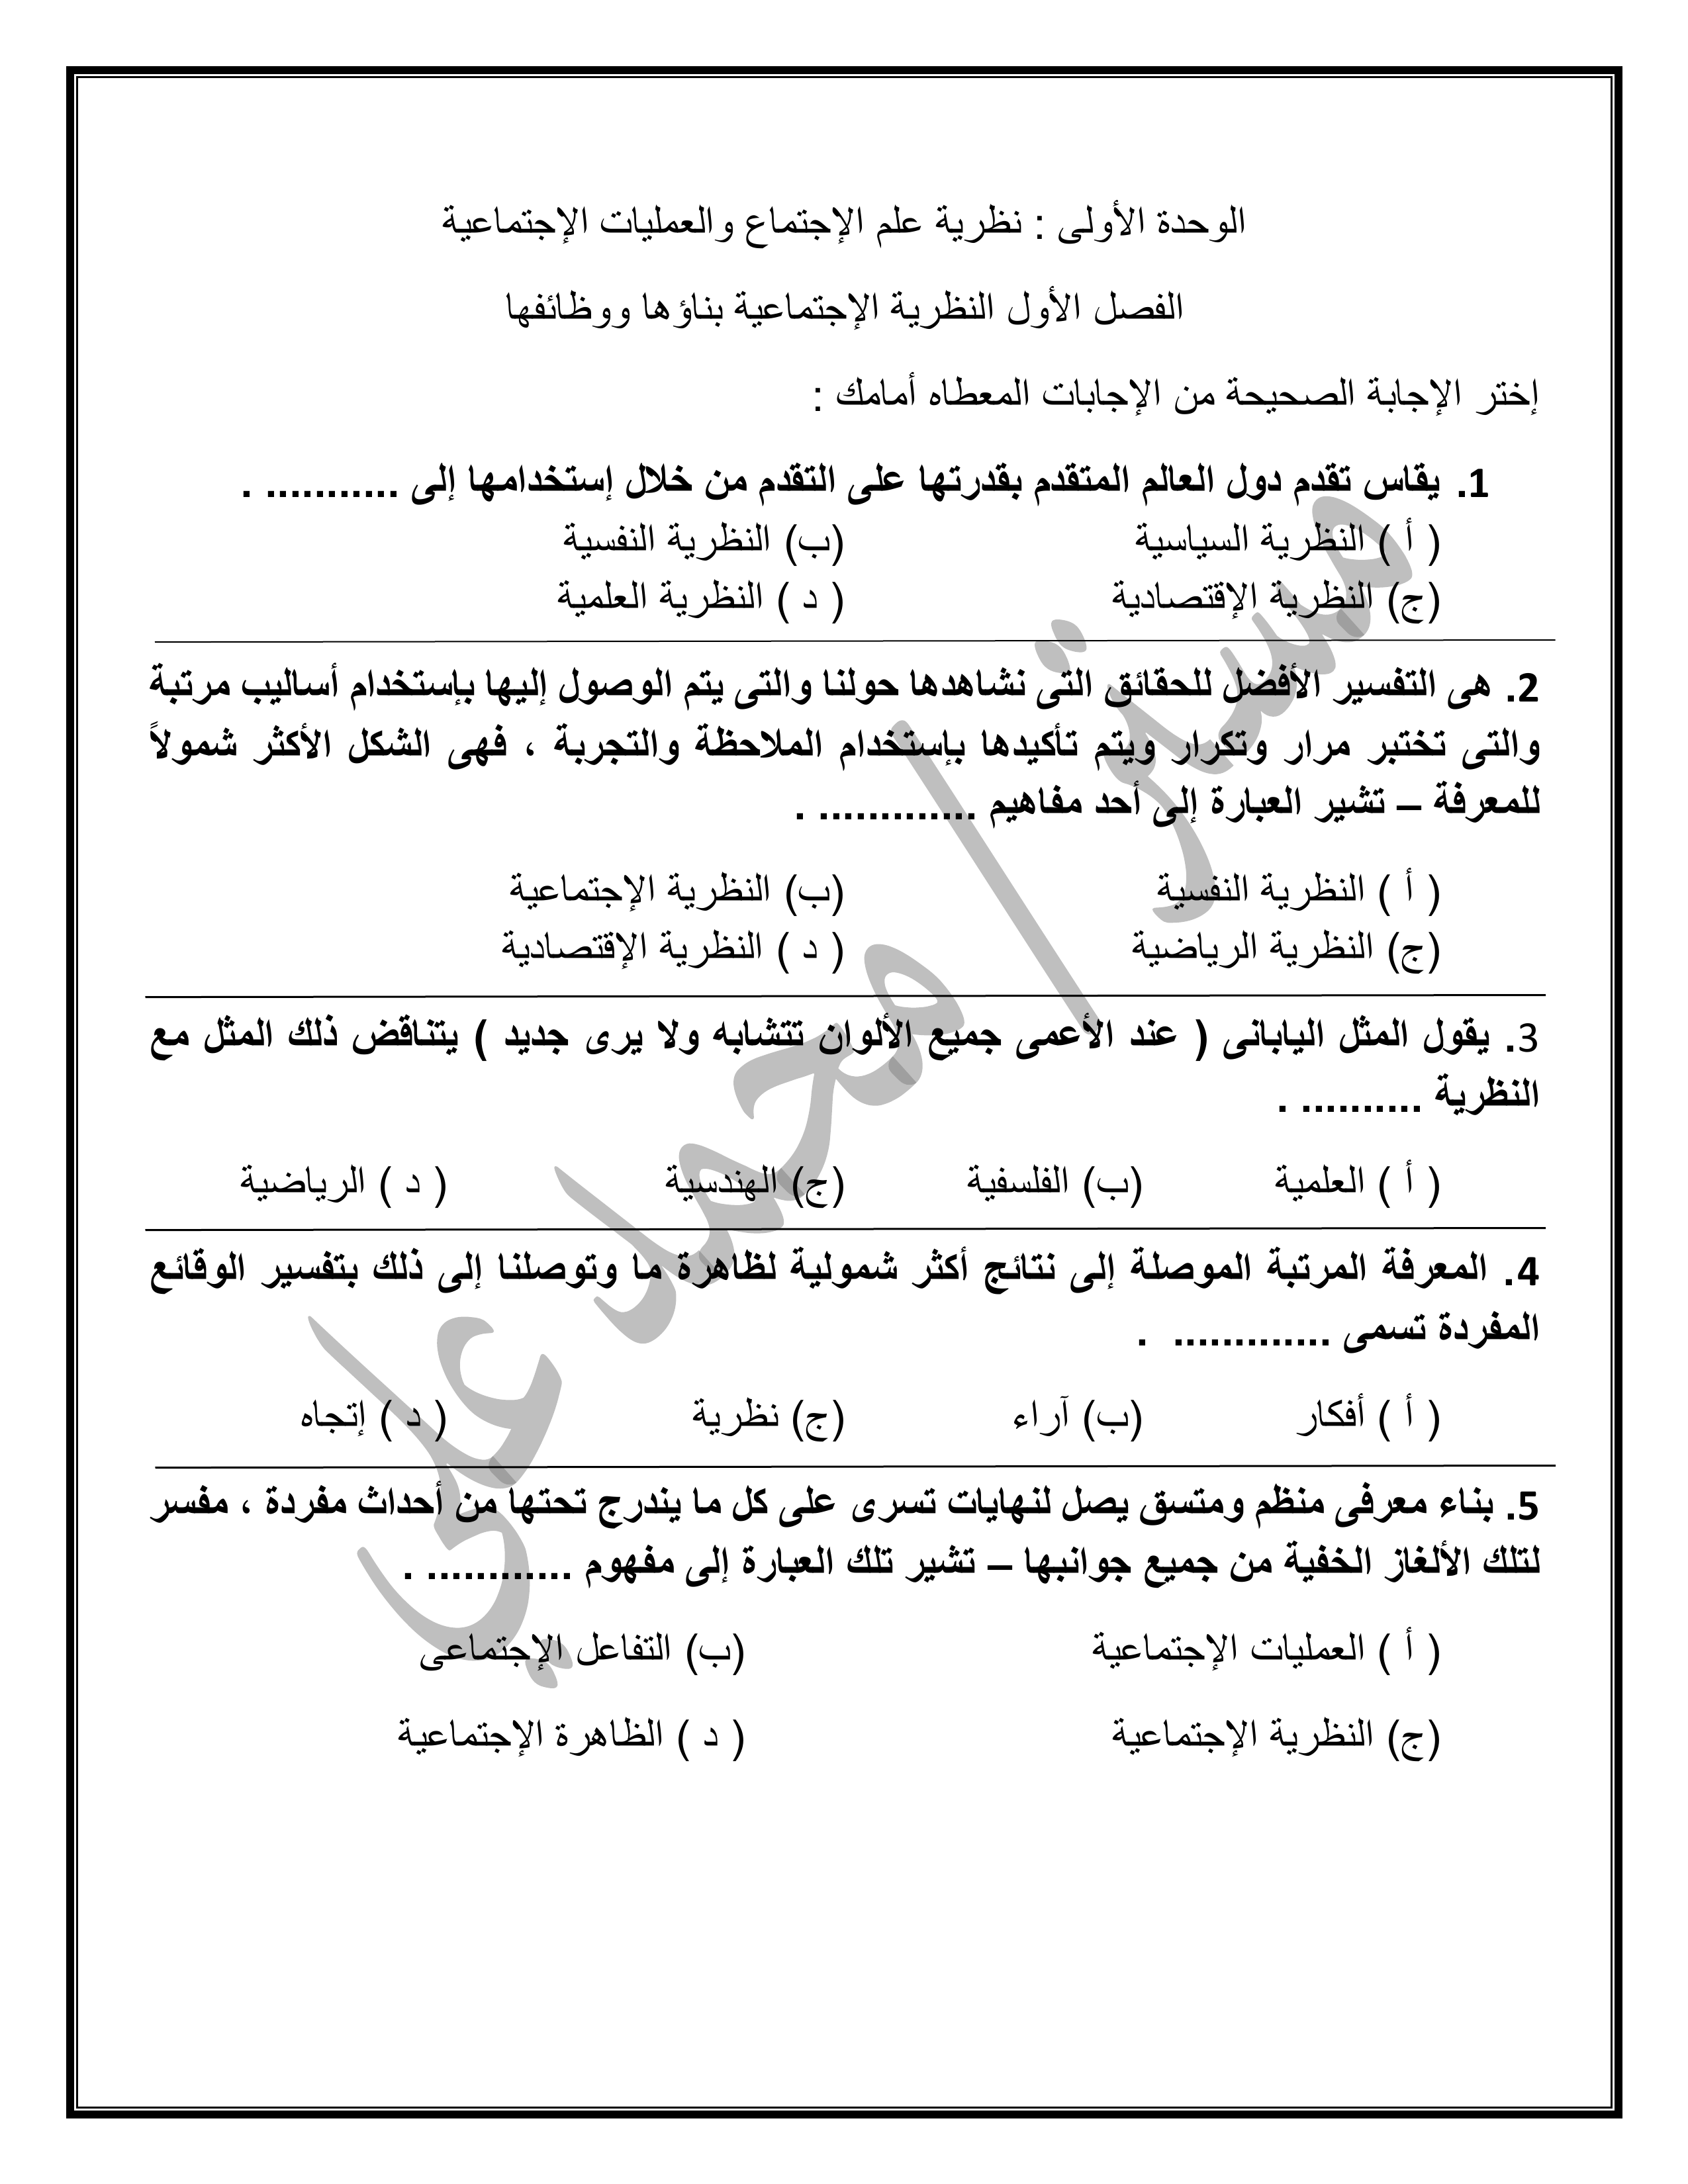 الوحدة الأولى : نظرية علم الإجتماع والعمليات الإجتماعية
الفصل الأول النظرية الإجتماعية بناؤها ووظائفها
إختر الإجابة الصحيحة من الإجابات المعطاه أمامك :
1. يقاس تقدم دول العالم المتقدم بقدرتها على التقدم من خلال إستخدامها إلى ........... .
( أ ) النظرية السياسية (ب) النظرية النفسية
(ج) النظرية الإقتصادية ( د ) النظرية العلمية
2. هى التفسير الأفضل للحقائق التى نشاهدها حولنا والتى يتم الوصول إليها بإستخدام أساليب مرتبة
والتى تختبر مرار وتكرار ويتم تأكيدها بإستخدام الملاحظة والتجربة ، فهى الشكل الأكثر شمولاً
للمعرفة – تشير العبارة إلى أحد مفاهيم ............. .
( أ ) النظرية النفسية (ب) النظرية الإجتماعية
(ج) النظرية الرياضية ( د ) النظرية الإقتصادية
3. يقول المثل اليابانى ( عند الأعمى جميع الألوان تتشابه ولا يرى جديد ) يتناقض ذلك المثل مع
النظرية .......... .
( أ ) العلمية (ب) الفلسفية (ج) الهندسية ( د ) الرياضية
4. المعرفة المرتبة الموصلة إلى نتائج أكثر شمولية لظاهرة ما وتوصلنا إلى ذلك بتفسير الوقائع
المفردة تسمى ............. .
( أ ) أفكار (ب) آراء (ج) نظرية ( د ) إتجاه
5. بناء معرفى منظم ومتسق يصل لنهايات تسرى على كل ما يندرج تحتها من أحداث مفردة ، مفسر
لتلك الألغاز الخفية من جميع جوانبها – تشير تلك العبارة إلى مفهوم ............ .
( أ ) العمليات الإجتماعية (ب) التفاعل الإجتماعى
(ج) النظرية الإجتماعية ( د ) الظاهرة الإجتماعية
مستر / محمد علي